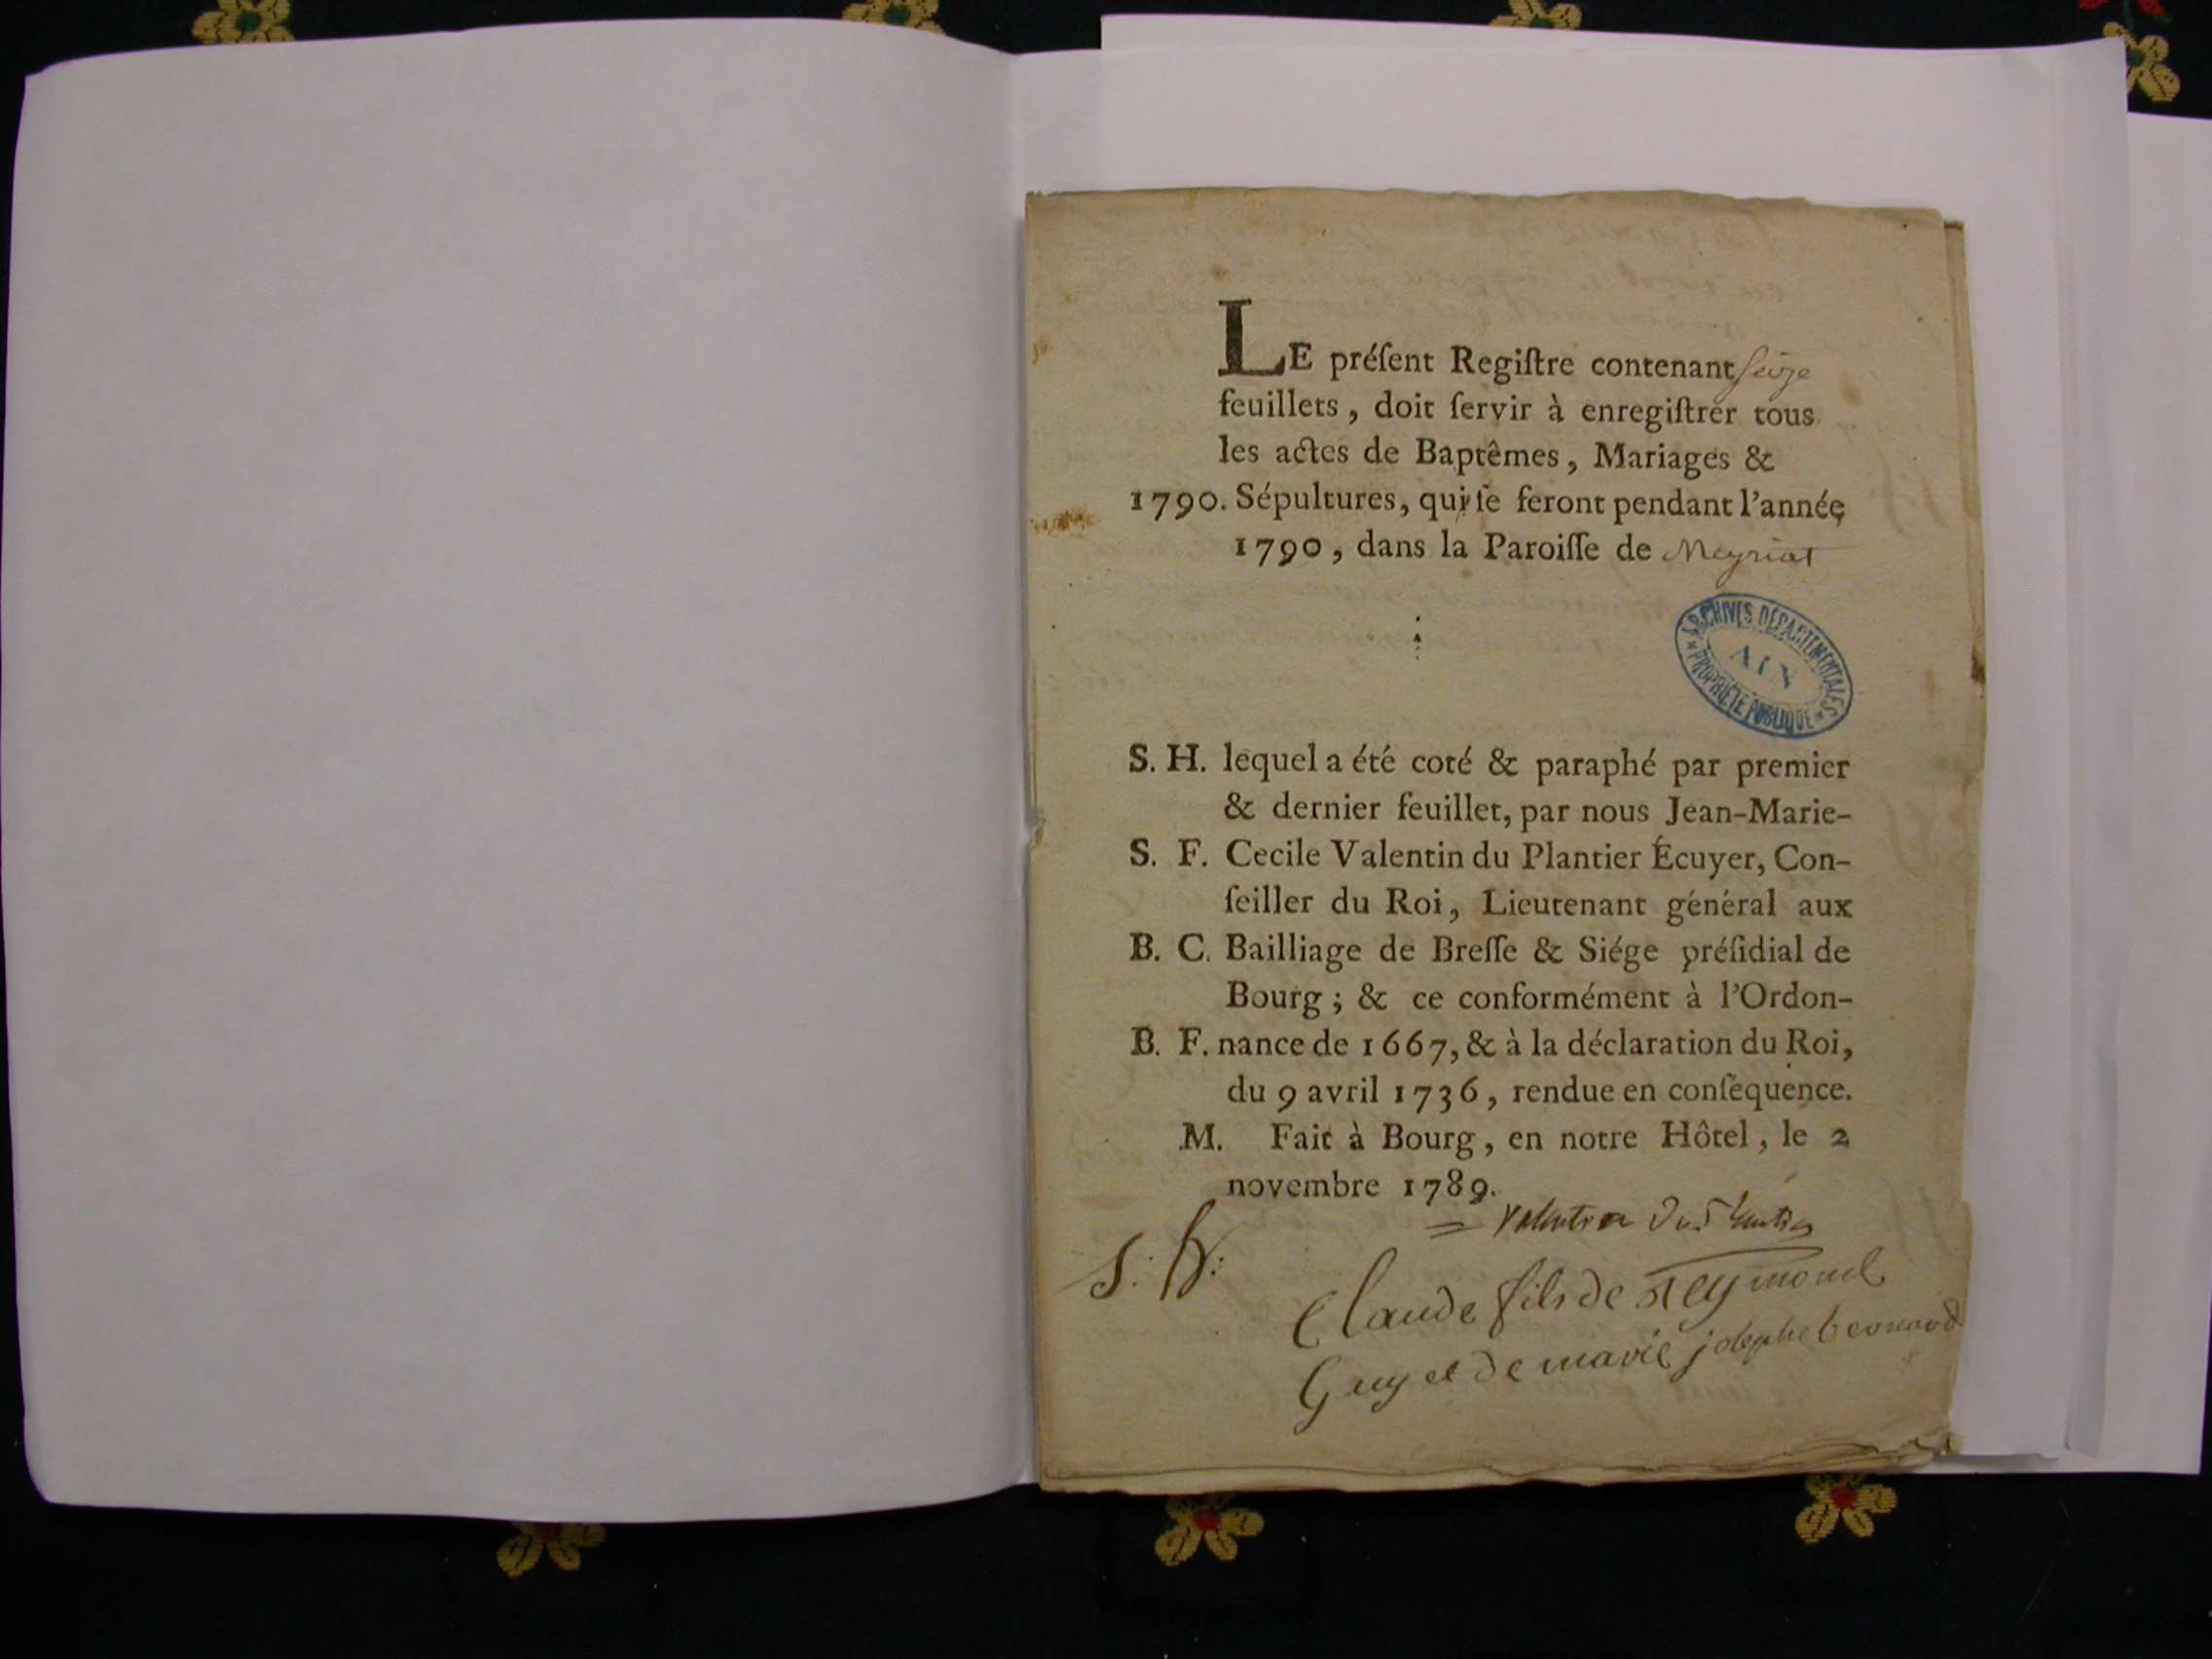 LE préſent Regiſtre contenant ſeize
feuillets, doit ſervir à enregiſtrer tous
les actes de Baptêmes, Mariages &
1790. Sépultures, qui ſe feront pendant l'année
1790, dans la Paroiſſe de Meyriat
ARCHIVES DÉPARTEMENTALES
AIN
PROPRIÉTÉ PUBLIQUE
S. H. lequel a été coté & paraphé par premier
& dernier feuillet, par nous Jean-Marie-
S. F. Cecile Valentin du Plantier Écuyer, Con-
ſeiller du Roi, Lieutenant général aux
B. C. Bailliage de Breſſe & Siége préſidial de
Bourg ; & ce conformément à l'Ordon-
B. F. nance de 1667, & à la déclaration du Roi,
du 9 avril 1736, rendue en conſequence.
M. Fait à Bourg, en notre Hôtel, le 2
novembre 1789.
= Valentin Du Plantier
S. h:
Claude fils de reymond
Guy et de marie josephe bernard